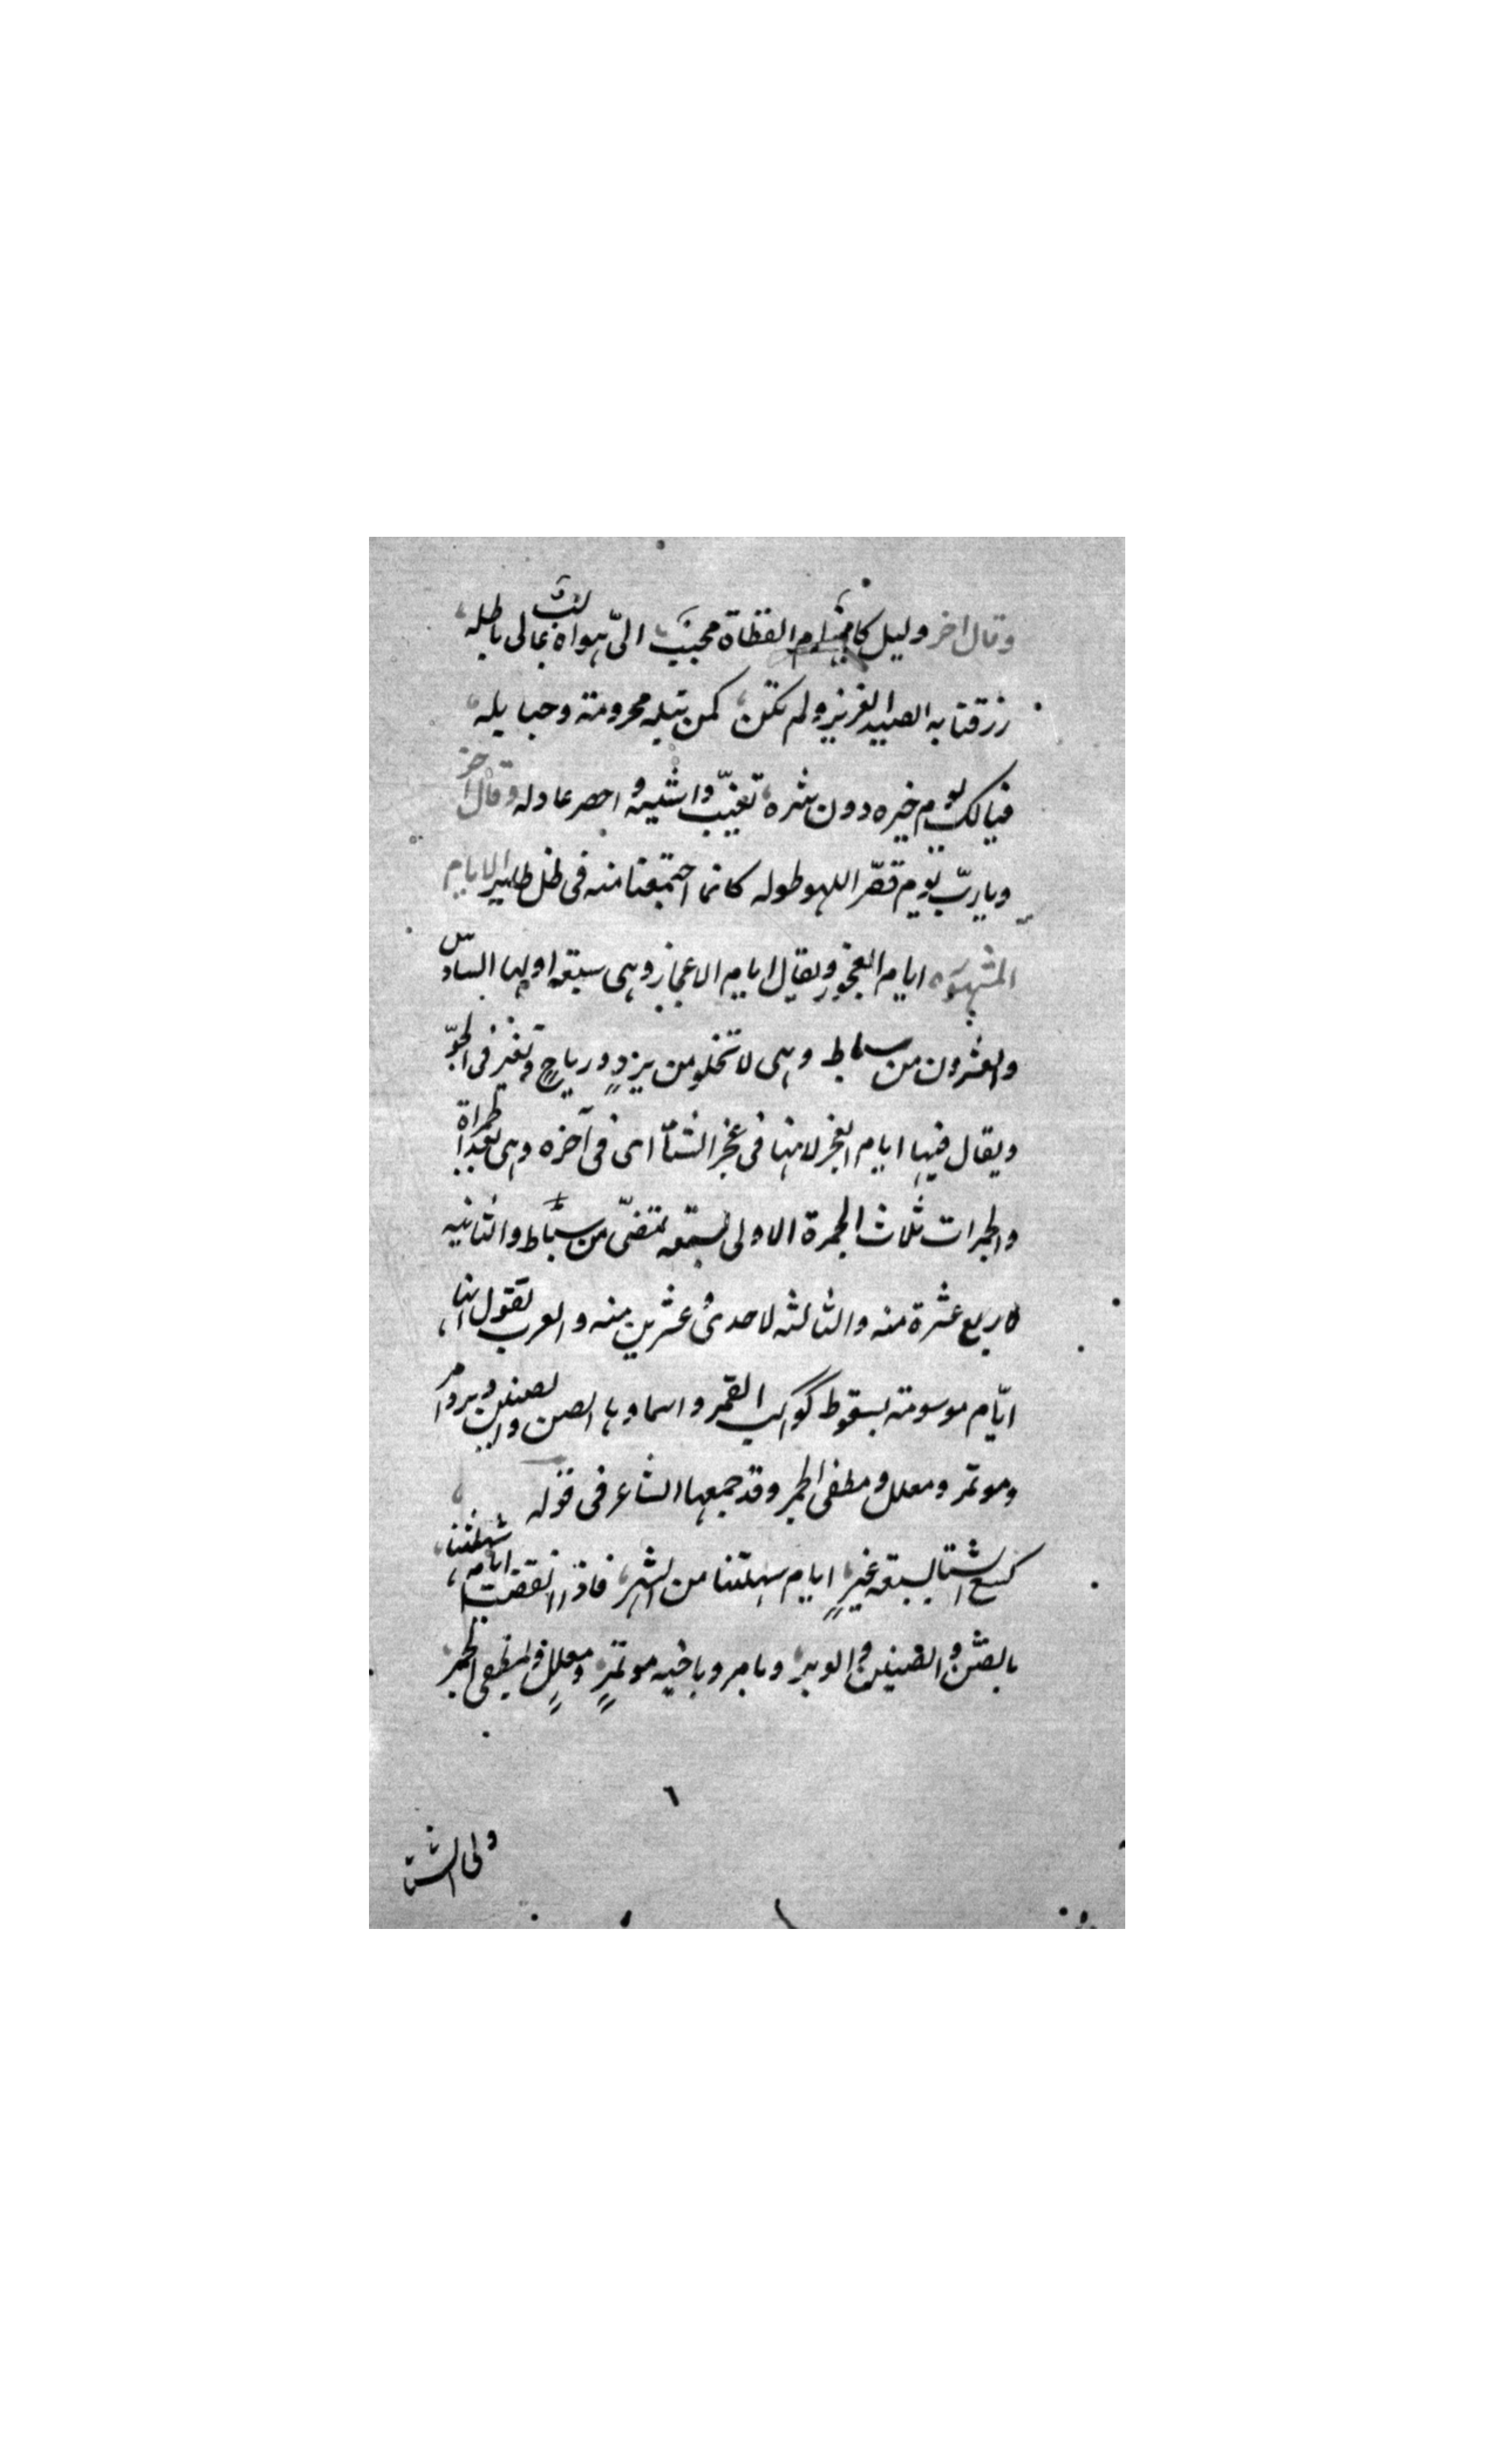 وقال اخر وليل كابهام القطاة محبب الىّ هواه غالب لى باطله
رزقنا به الصيد الغزير ولم نكن كمن نبله محرومة وحبايله
فيالك يوم خيره دون شره تغيّب واشيه و احصر عاذله وقال اخر
ويا ربّ يوم قصّر اللهو طوله كانما اجتمعنا منه فى ظل طاير الايام
المشهوره ايام العجوز ويقال ايام الاعجاز وهى سبعه اولها السادس
والعشرون من سباط وهى لا تخلو من بردٍ ورياحٍ وتغير فى الجوّ
ويقال فيها ايام العجز لانها فى عجز الشتآ اى فى آخره وهى بعد
والجمرات ثلاث الجمرة الاولى لسبعه تمضى من سباط والثانيه
لاربع عشرة منه والثالثه لاحدى وعشرين منه والعرب تقول انها
ايّام موسومة بسقوط كواكب القمر واسماوها الصن والصنبر والوبر وامر
وموتمر ومعلل ومطفى الجمر وقد جمعها الشاعر فى قوله
كسع الشتا لسبعه غبرٍ ايام شهلتنا من الشهر فاذا انقضت ايام شهلتنا
بالصن والصنبر والوبر وبامر وباخيه موتمرٍ ومعللٍ وبمطفى الجمر
٦
ولى الشتا